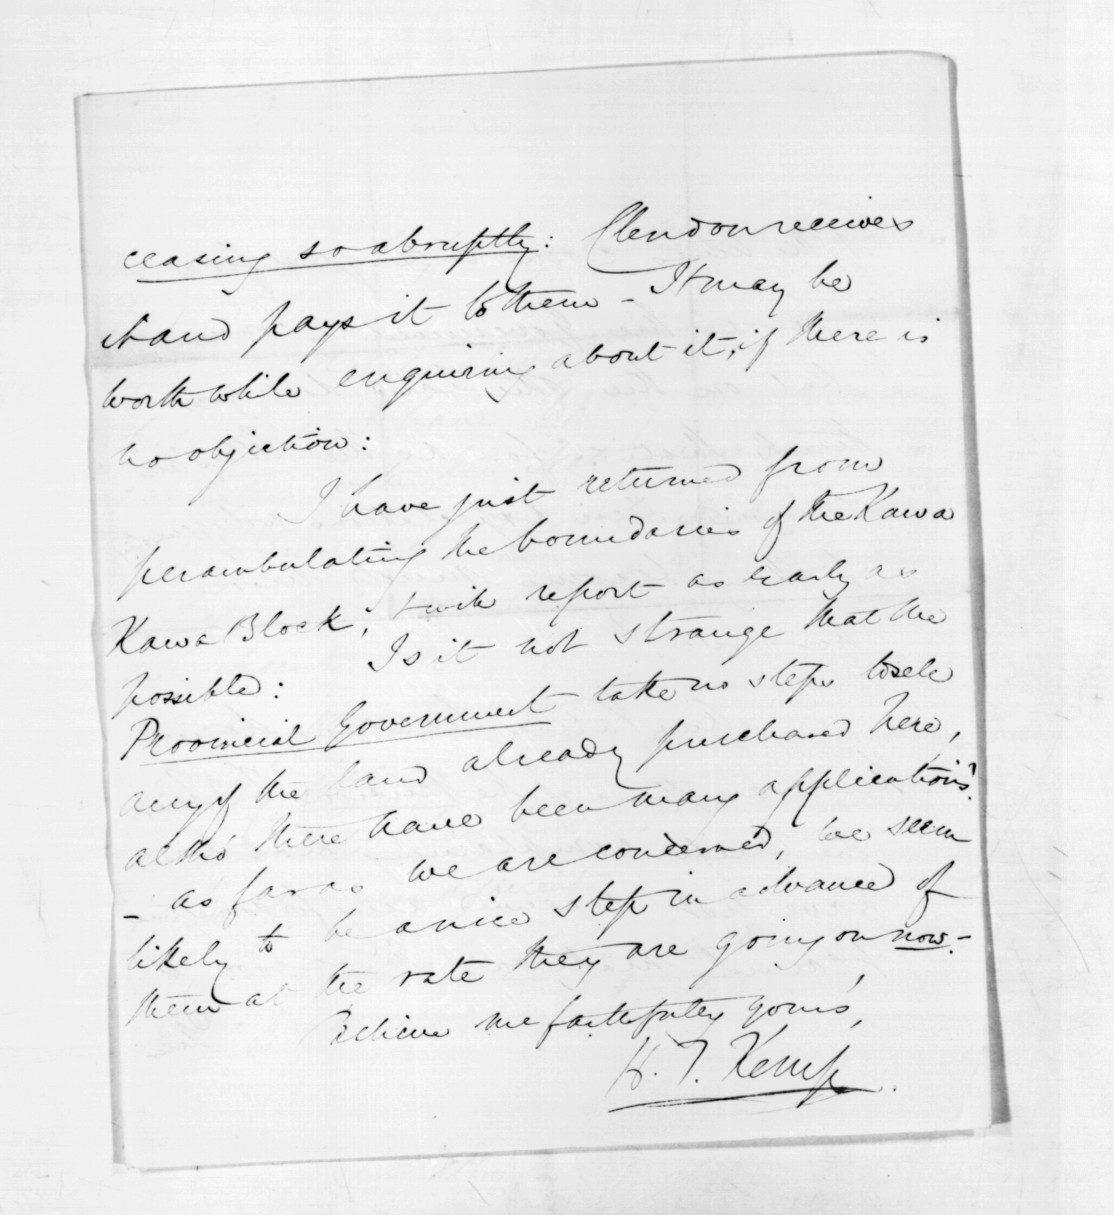 ceasing so abruptly: Clendon receives
it and pays it to them - It may be
worth while enquiring about it, if there is
no objection:
I have just returned from
perambulating the boundaries of the Kawa
Kawa Block, & will report as early as
possible: Is it not strange that the
Provincial Government take no steps to sell
any of the land already purchased here,
altho' there have been many applications?
- as far as we are concerned, we seem
likely to be a nice step in advance of
them at the rate they are going on now -
Believe me faithfully yours,
H. T. Kemp.